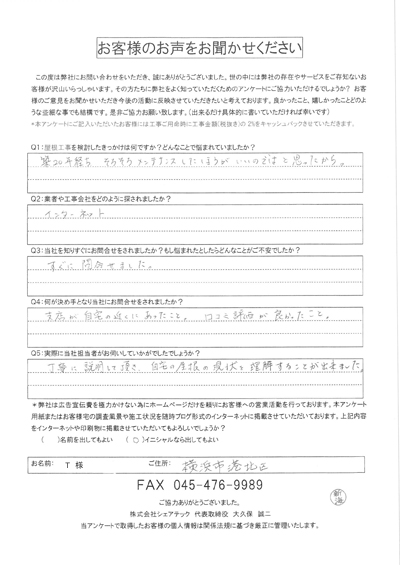 お客様のお声をお聞かせください
この度は弊社にお問い合わせをいただき、誠にありがとうございました。世の中には弊社の存在やサービスをご存知ないお
客様が沢山いらっしゃいます。その方たちに弊社をよく知っていただくためのアンケートにご協力いただけるでしょうか? お
客様のご意見をお聞かせいただき今後の活動に反映させていただきたいと考えております。良かったこと、嬉しかったことどのよ
うな些細な事でも結構です。是非ご協力お願い致します。(出来るだけ具体的に書いていただければ幸いです)
*本アンケートにご記入いただいたお客様には工事ご用命時に工事金額(税抜き)の2%をキャッシュバックさせていただきます。
Q1:屋根工事を検討したきっかけは何ですか?どんなことで悩まれていましたか?
築20年経ち そろそろメンテナンスしたほうがいいのではと思ったから。
Q2:業者や工事会社をどのように探されましたか?
インターネット
Q3:当社を知りすぐにお問合せをされましたか?もし悩まれたとしたらどんなことがご不安でしたか?
すぐに問合せました。
Q4:何が決め手となり当社にお問合せをされましたか?
支店が自宅の近くにあったこと。 口コミ評価が良かったこと。
Q5:実際に当社担当者がお伺いしていかがでしたでしょうか?
丁寧に説明して頂き、自宅の屋根の現状を理解することが出来ました。
*弊社は広告宣伝費を極力かけない為にホームページだけを頼りにお客様への営業活動を行っております。本アンケート
用紙またはお客様宅の調査風景や施工状況を随時ブログ形式のインターネットに掲載させていただいております。上記内容
をインターネットや印刷物に掲載させていただいてもよろしいでしょうか?
( )名前を出してもよい (○)イニシャルなら出してもよい
お名前: T 様 ご住所: 横浜市港北区
FAX 045-476-9989
ご協力ありがとうございました。
株式会社シェアテック 代表取締役 大久保 誠二
当アンケートで取得したお客様の個人情報は関係法規に基づき厳正に管理いたします。